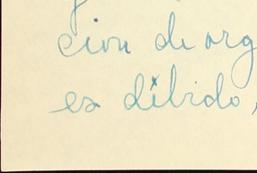 cion de org
es díbido,